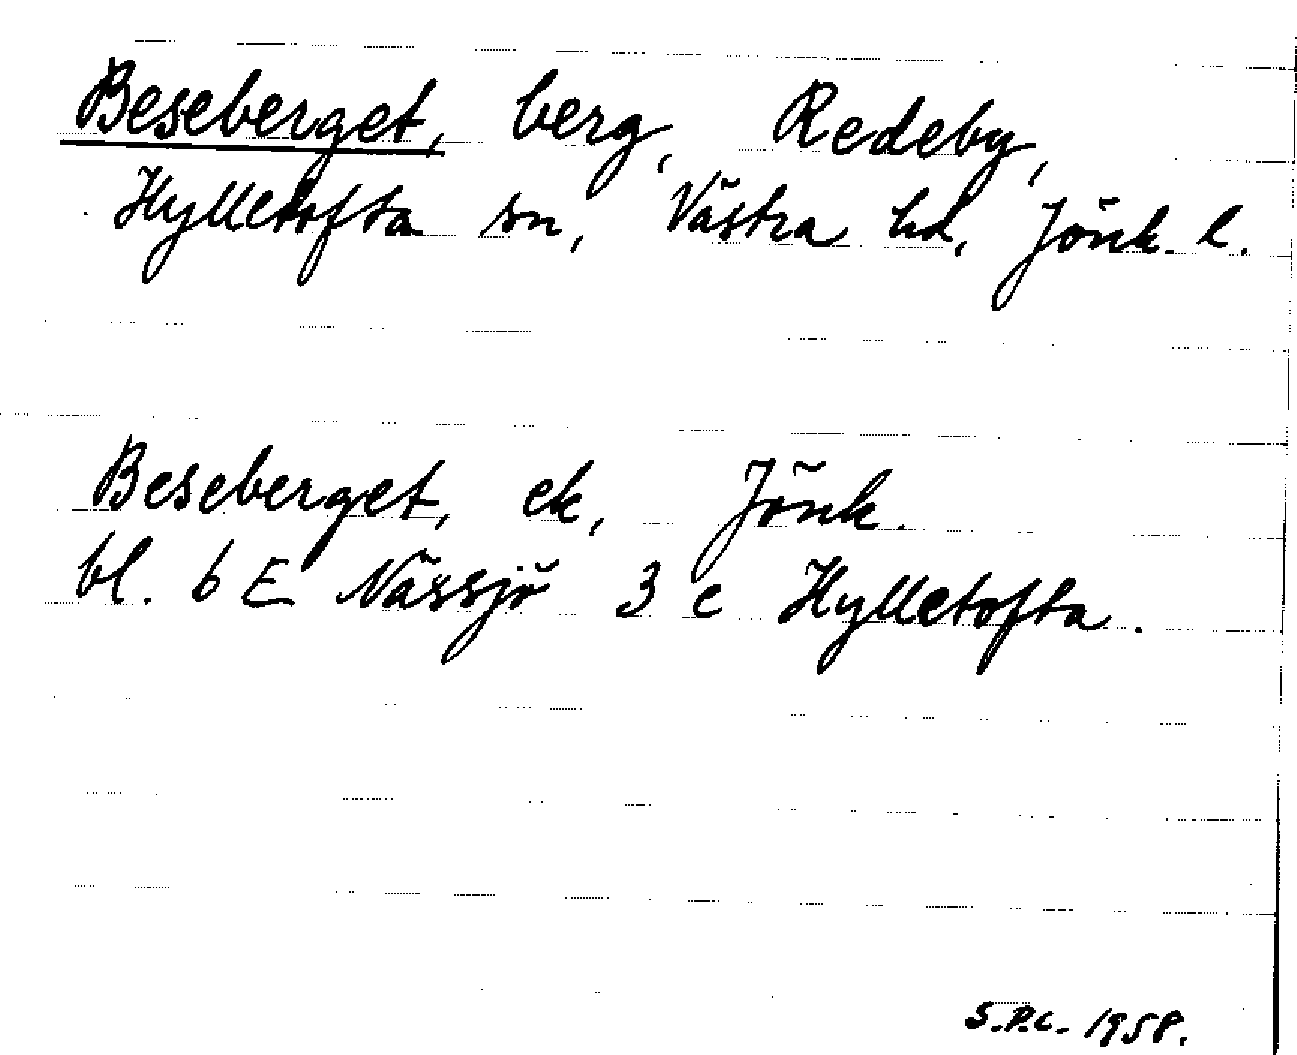 Beseberget, berg, Redeby,
Hylletofta sn, Västra hd, Jönk. l.
Beseberget, ek, Jönk.
bl. 6 E Nässjö 3 e Hylletofta.
S.P.C. 1958.